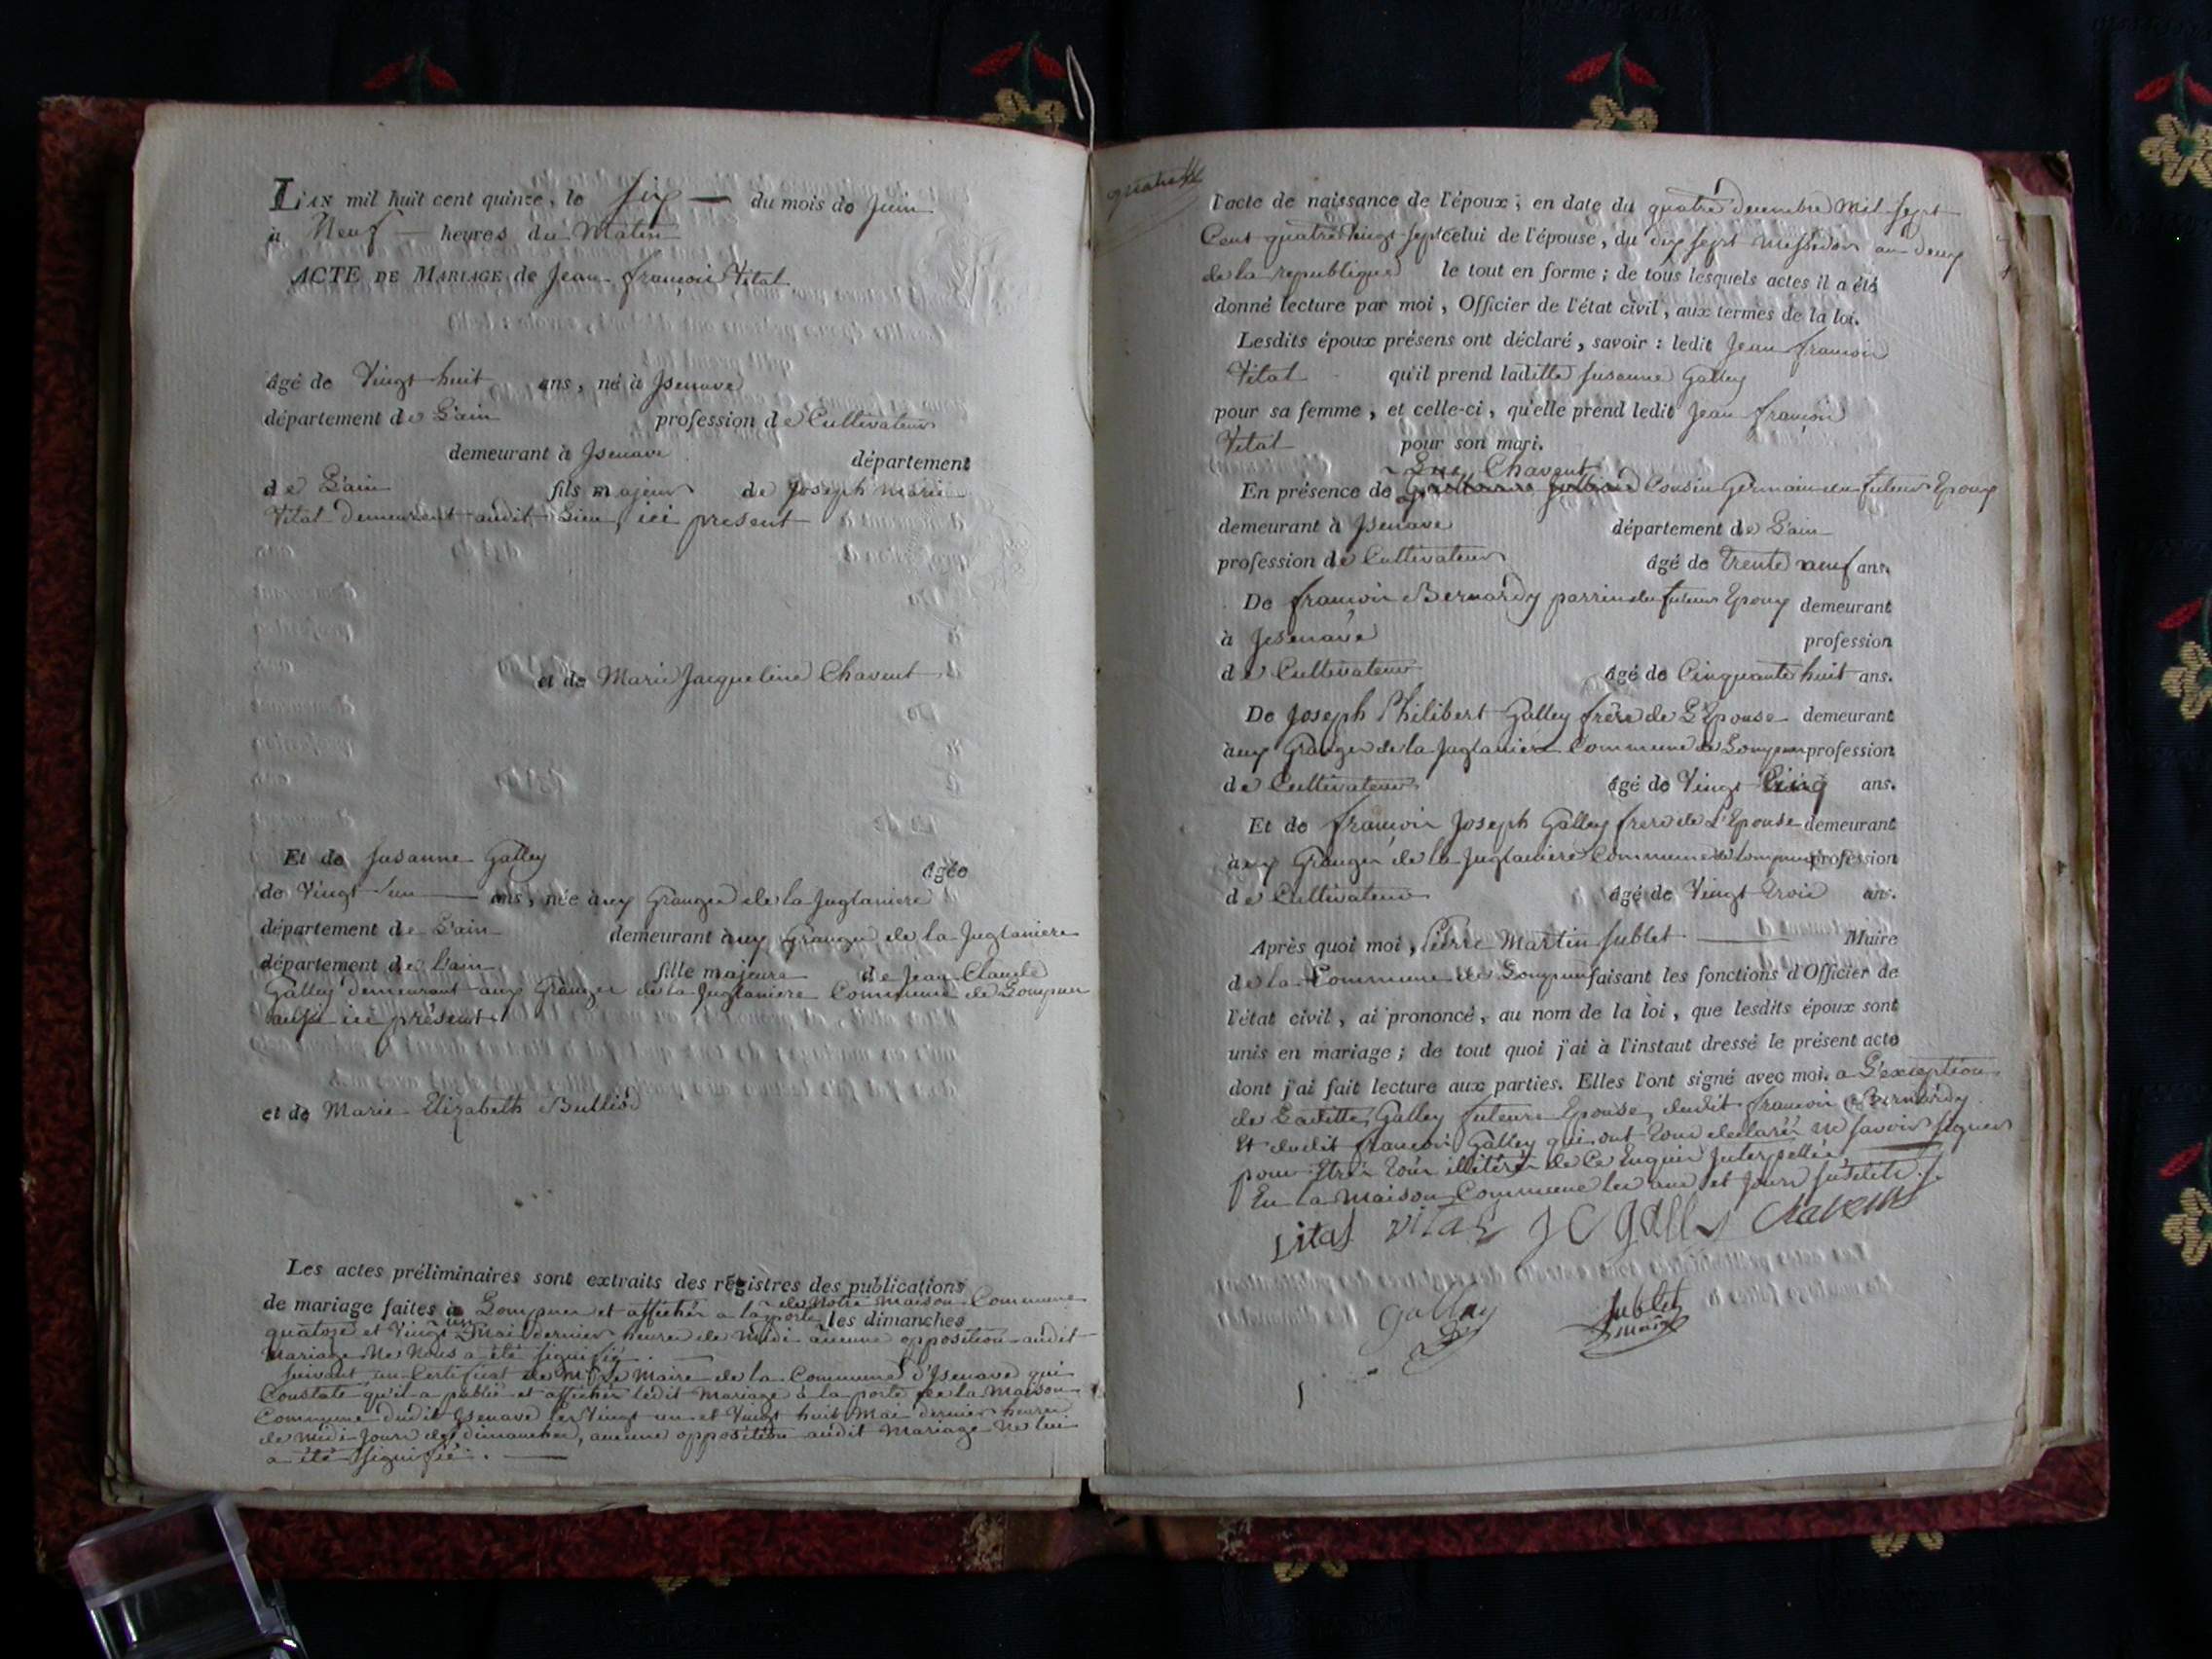 L'AN mil huit cent quinze, le six du mois de Juin
à Neuf heures du Matin
ACTE DE MARIAGE de Jean françois Vital
âgé de Vingt huit ans, né à Jzenave
département de L'ain profession de Cultivateur
demeurant à Jzenave département
de L'ain fils majeur de Joseph Marie
Vital demeurant audit Lieu, ici present
et de Marie Jacqueline Chavent
Et de Susanne Galley âgée
de Vingt un ans, née aux Granges de la Juglaniere
département de L'ain demeurant aux Granges de la Juglaniere
département de L'ain fille majeure de Jean Claude
Galley demeurant aux Granges de la Juglaniere Commune de Lompner
aussi ici présent
et de Marie Elizabeth Bulliod
Les actes préliminaires sont extraits des régistres des publications
de mariage faites à Lompner et affichés a la porte de Notre maison Commune les dimanches
quatoze et Vingt un Mai dernier heures de Midi aucune opposition audit
Mariage Ne Nous a été signifié.
suivant un Certificat de Mr Le Maire de la Commune d'Jzenave qui
Constate qu'il a publié et affichés ledit Mariage à la porte de la Maison
Commune dudit Jzenave les Vingt un et Vingt huit Mai dernier heures
de Midi Jours de dimanches, aucune opposition audit Mariage Ne lui
a été signifié.
l'acte de naissance de l'époux; en date du quatre decembre Mil sept
Cent quatre Vingt sept celui de l'épouse, du dix sept Messidor an deux
de la republique le tout en forme; de tous lesquels actes il a été
donné lecture par moi, Officier de l'état civil, aux termes de la loi.
Lesdits époux présens ont déclaré, savoir: ledit Jean françois
Vital qu'il prend laditte Susanne Galley
pour sa femme, et celle-ci, qu'elle prend ledit Jean françois
Vital pour son mari.
Luc Chavent
En présence de Cousin Germain du futeur Epoux
demeurant à Jzenave département de L'ain
profession de Cultivateur âgé de trente neuf ans.
De françois Bernardy parrin du futeur Epoux demeurant
à Jzenave profession
de Cultivateur âgé de Cinquante huit ans.
De Joseph Philibert Galley frère de L'Epouse demeurant
aux Granges de la Juglaniere Commune de Lompner profession
de Cultivateur âgé de Vingt Cinq ans.
Et de françois Joseph Galley frere de L'Epouse demeurant
aux Granges de la Juglaniere Commune de Lompner profession
de Cultivateur âgé de Vingt trois ans.
Après quoi moi, Pierre Martin Sublet Maire
de la Commune de Lompner faisant les fonctions d'Officier de
l'état civil, ai prononcé, au nom de la loi, que lesdits époux sont
unis en mariage; de tout quoi j'ai à l'instant dressé le présent acte
dont j'ai fait lecture aux parties. Elles l'ont signé avec moi. a L'exception
de Laditte Galley futeure Epouse, dudit françois Bernardy
Et dudit françois Galley qui ont tous declarés ne savoir signer
pour Etres tous illiterés de Ce Enquis Interpellés
En la Maison Commune les ans et Jours susdits.
Vital Vital J C Galley Chavent
Galley Sublet
Maire